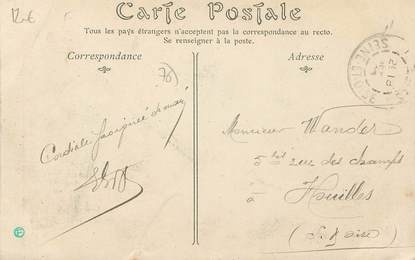 Carte Postale
Tous les pays étrangers n'acceptent pas la correspondance au recto.
Se renseigner à la poste.
Correspondance
Adresse
76
SEINE ET OISE
Cordiale poignée de main
Monsieur Wander
5 bis rue des champs
à Houilles
(S. & Oise)